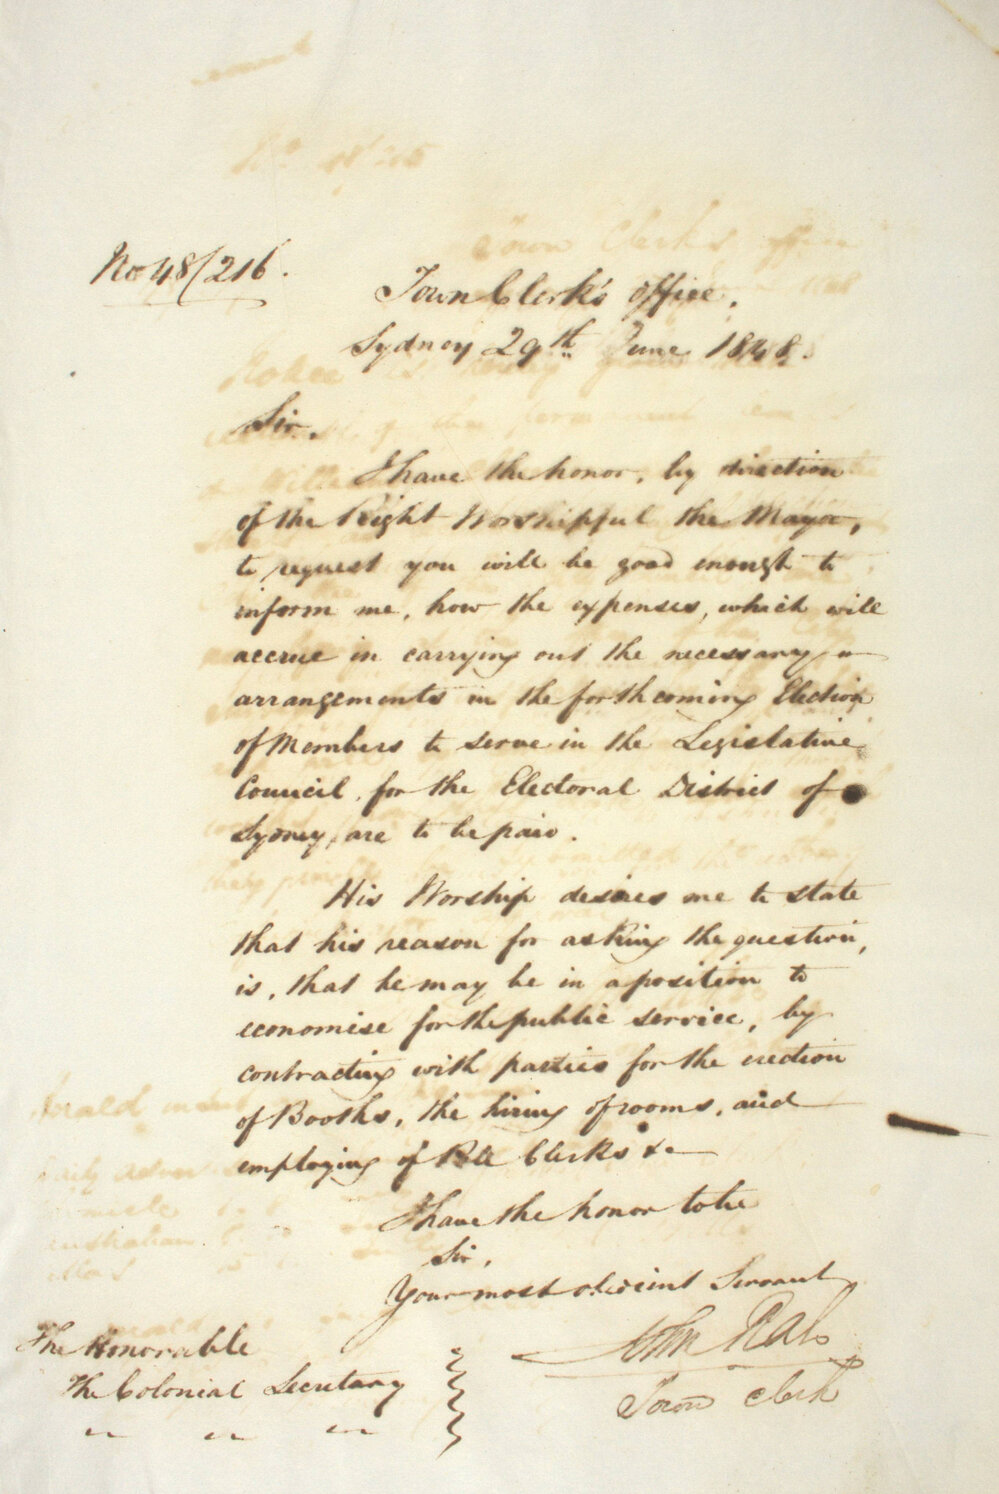 No 48/216.
Town Clerk's office,
Sydney 29th June 1848.
Sir,
I have the honor, by direction
of the Right Worshipful the Mayor,
to request you will be good enough to
inform me, how the expenses, which will
accrue in carrying out the necessary
arrangements in the forthcoming Election
of Members to serve in the Legislative
Council, for the Electoral District of
Sydney, are to be paid.
His Worship desires me to state
that his reason for asking the question,
is, that he may be in a position to
economise for the public service, by
contracting with parties for the erection
of Booths, the hiring of rooms, and
employing of Poll Clerks &c
I have the honor to be
Sir,
Your most obedient Servant
John Rae
Town Clerk
The Honorable
The Colonial Secretary